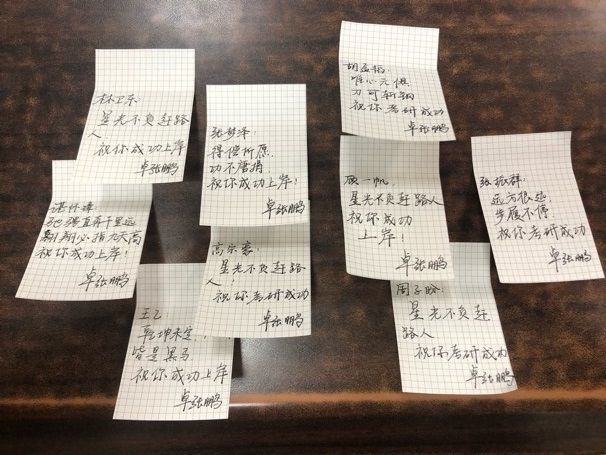 林卫东:
星光不负赶路
人
祝你成功上岸
卓张鹏
张梦泽:
得偿所愿,
功不唐捐
祝你成功上岸!
卓张鹏
胡孟韬:
唯心无惧
方可斩钢
祝你考研成功
卓张鹏
谌怀泽
驰骋直奔千里远
翱翔必指九天高
祝你成功上岸!
卓张鹏
高尔豪:
星光不负赶路
人!
祝你考研成功
卓张鹏
顾一帆,
星光不负赶路人
祝你成功
上岸!
卓张鹏
张振群:
远方很远,
步履不停
祝你考研成功
卓张鹏
王乙
乾坤未定,
皆是黑马
祝你成功上岸
卓张鹏
周子晗:
星光不负赶
路人
祝你考研成功
卓张鹏